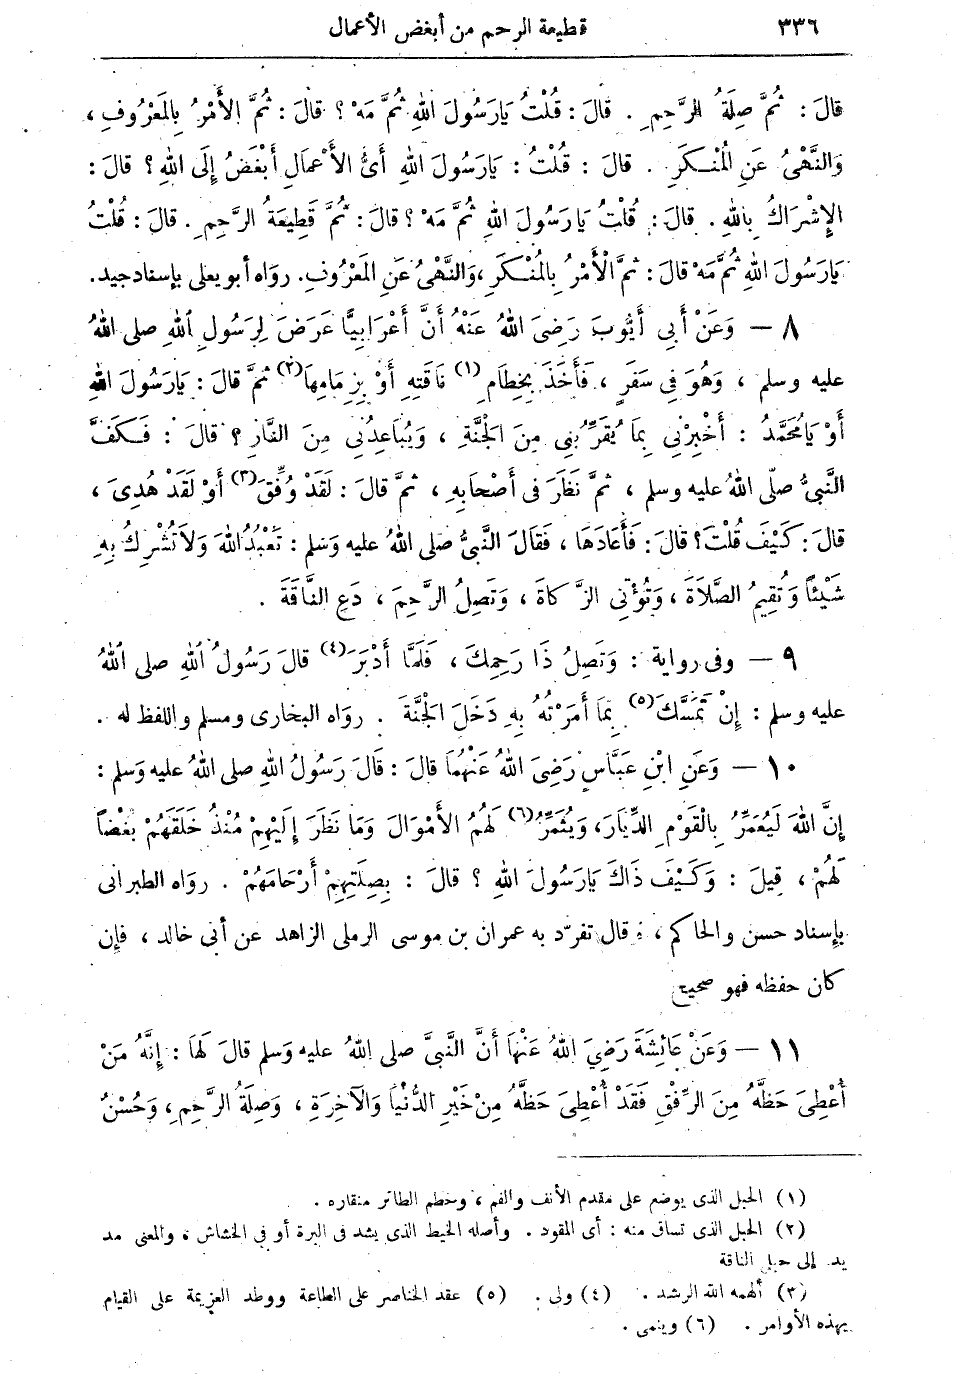 ٣٣٦ قطيعة الرحم من أبغض الأعمال
قَالَ : ثُمَّ صِلَةُ الرَّحِمِ . قَالَ : قُلْتُ يَارَسُولَ اللهِ ثُمَّ مَهْ ؟ قَالَ : ثُمَّ الأَمْرُ بِالمَعْرُوفِ ،
وَالنَّهْىُ عَنِ المُنْكَرِ . قَالَ : قُلْتُ : يَارَسُولَ اللهِ أَىُّ الأَعْمَالِ أَبْغَضُ إِلَى اللهِ ؟ قَالَ :
الإِشْرَاكُ بِاللهِ . قَالَ : قُلْتُ يَارَسُولَ اللهِ ثُمَّ مَهْ ؟ قَالَ : ثُمَّ قَطِيعَةُ الرَّحِمِ . قَالَ : قُلْتُ
يَارَسُولَ اللهِ ثُمَّ مَهْ قَالَ : ثمَّ الْأَمْرُ بِالمُنْكَرِ ، وَالنَّهْىُ عَنِ المَعْرُوفِ . رَوَاه أبو يعلى بإسناد جيد .
٨ — وَعَنْ أَبِى أَيُّوبَ رَضِىَ اللهُ عَنْهُ أَنَّ أَعْرَابِيًّا عَرَضَ لِرَسُولِ اللهِ صلى اللهُ
عليه وسلم ، وَهُوَ فِى سَفَرٍ ، فَأَخَذَ بِخِطَامِ (١) نَاقَتِهِ أَوْ بِزِمَامِهَا (٢) ثمَّ قَالَ : يَارَسُولَ اللهِ
أَوْ يَامُحَمَّدُ : أَخْبِرْنِى بِمَا يُقَرِّبُنِى مِنَ الجَنَّةِ ، وَيُبَاعِدُنِى مِنَ النَّارِ ؟ قَالَ : فَكَفَّ
النَّبِىُّ صلّى اللهُ عليه وسلم ، ثمَّ نَظَرَ فى أَصْحَابِهِ ، ثمَّ قَالَ : لَقَدْ وُفِّقَ (٣) أَوْ لَقَدْ هُدِىَ ،
قَالَ : كَيْفَ قُلْتَ ؟ قَالَ : فَأَعَادَهَا ، فَقَالَ النَّبِىُّ صلى اللهُ عليه وَسَلم : تَعْبُدُ اللهَ وَلاَ تُشْرِكُ بِهِ
شَيْئًا وَتُقِيمُ الصَّلاَةَ ، وَتُؤْتِى الزَّكَاةَ ، وَتَصِلُ الرَّحِمَ ، دَعِ النَّاقَةَ .
٩ — وفى رواية : وَتَصِلُ ذَا رَحِمِكَ ، فَلَمَّا أَدْبَرَ (٤) قَالَ رَسُولُ اللهِ صلى اللهُ
عليه وسلم : إِنْ تَمَسَّكَ (٥) بِمَا أَمَرْتُهُ بِهِ دَخَلَ الجَنَّةَ . رَوَاه البخارى ومسلم واللفظ له .
١٠ — وَعَنِ ابْنِ عَبَّاسٍ رَضِىَ اللهُ عَنْهُمَا قَالَ : قَالَ رَسُولُ اللهِ صلى اللهُ عليه وَسَلم :
إِنَّ اللهَ لَيُعَمِّرُ بِالْقَوْمِ الدِّيَارَ ، وَيُثَمِّرُ (٦) لَهُمُ الأَمْوَالَ وَمَا نَظَرَ إِلَيْهِمْ مُنْذُ خَلَقَهُمْ بُغْضًا
لَهُمْ ، قِيلَ : وَكَيْفَ ذَاكَ يَارَسُولَ اللهِ ؟ قَالَ : بِصِلَتِهِمْ أَرْحَامَهُمْ . رَوَاه الطبرانى
بإسناد حسن والحاكم ، قال تفرّد به عمران بن موسى الرملى الزاهد عن أبى خالد ، فإن
كان حفظه فهو صحيح
١١ — وَعَنْ عَائِشَةَ رَضِيَ اللهُ عَنْهَا أَنَّ النَّبِىَّ صلى اللهُ عليه وَسلم قَالَ لَهَا : إِنَّهُ مَنْ
أُعْطِىَ حَظَّهُ مِنَ الرِّفْقِ فَقَدْ أُعْطِىَ حَظَّهُ مِنْ خَيْرِ الدُّنْيَا وَالآخِرَةِ ، وَصِلَةُ الرَّحِمِ ، وَحُسْنُ
(١) الحبل الذى يوضع على مقدم الأنف والفم ، وخطم الطائر منقاره .
(٢) الحبل الذى تساق منه : أى المقود . وأصله الخيط الذى يشد فى البرة أو فى الخشاش ، والمعنى مد
يد إلى حبل الناقة
(٣) ألهمه الله الرشد . (٤) ولى . (٥) عقد الخناصر على الطاعة ووطد العزيمة على القيام
بهذه الأوامر . (٦) وينمى .